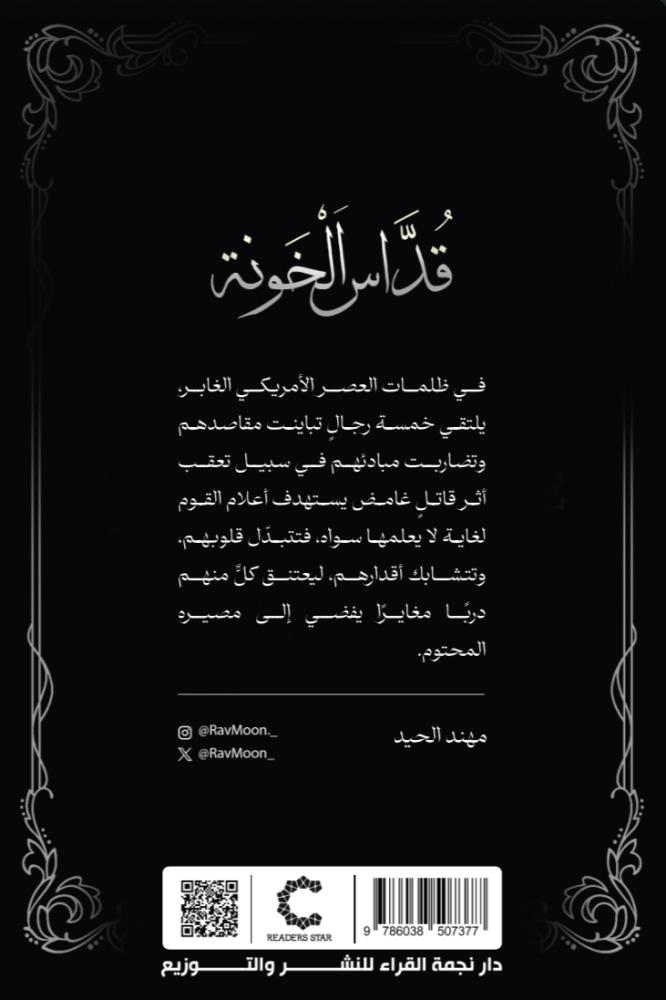 قُدَّاس الْخَونة
في ظلمات العصر الأمريكي الغابر،
يلتقي خمسة رجالٍ تباينت مقاصدهم
وتضاربت مبادئهم في سبيل تعقب
أثر قاتلٍ غامض يستهدف أعلام القوم
لغاية لا يعلمها سواه، فتتبدّل قلوبهم،
وتتشابك أقدارهم، ليعتنق كلٌّ منهم
دربًا مغايرًا يفضي إلى مصيره
المحتوم.
مهند الحيد
@RavMoon._
@RavMoon_
READERS STAR
9 786038 507377
دار نجمة القراء للنشر والتوزيع